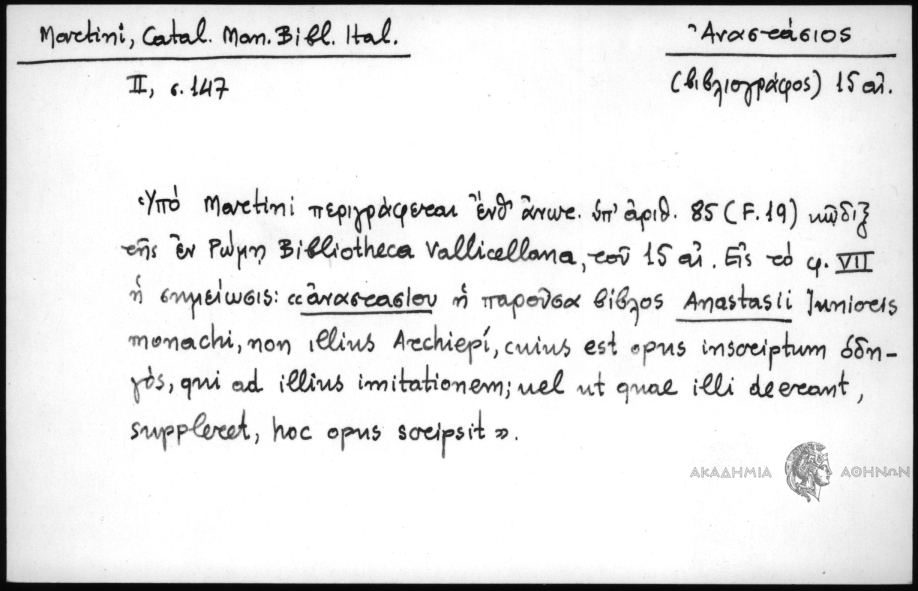 Martini, Catal. Man. Bibl. Ital.
II, σ. 147
Ἀναστάσιος
(βιβλιογράφος) 15 αἰ.
Ὑπό Martini περιγράφεται ἔνθ' ἀνωτ. ὑπ' ἀριθ. 85 (F. 19) κῶδιξ
τῆς ἐν Ρώμῃ Bibliotheca Vallicellana, τοῦ 15 αἰ. Εἰς τό φ. VII
ἡ σημείωσις: «ἀναστασίου ἡ παροῦσα βίβλος Anastasii Junioris
monachi, non illius Archiepi, cuius est opus inscriptum ὁδη-
γός, qui ad illius imitationem; uel ut quae illi deerant,
suppleret, hoc opus scripsit».
ΑΚΑΔΗΜΙΑ ΑΘΗΝΩΝ